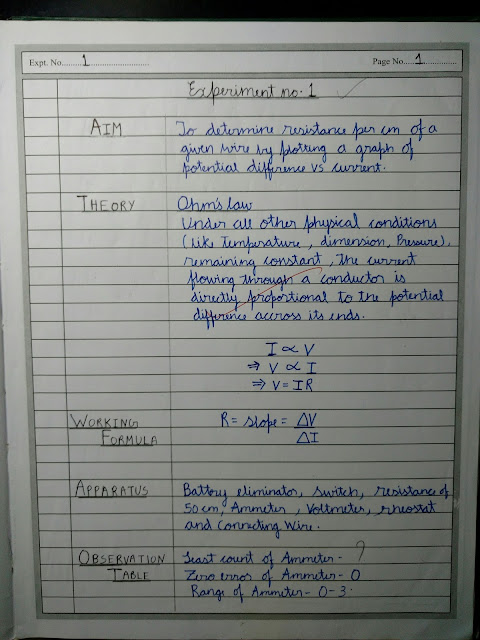 Expt. No. 1
Page No. 1
Experiment no. 1
AIM
To determine resistance per cm of a
given wire by plotting a graph of
potential difference vs current.
THEORY
Ohm's law
Under all other physical conditions
(like Temperature, dimension, Pressure),
remaining constant, the current
flowing through a conductor is
directly proportional to the potential
difference accross its ends.
I ∝ V
⇒ V ∝ I
⇒ V = IR
WORKING
FORMULA
R = slope = ΔV
ΔI
APPARATUS
Battery eliminator, switch, resistance of
50 cm, Ammeter, Voltmeter, rheostat
and Connecting Wire.
OBSERVATION
TABLE
Least count of Ammeter - ?
Zero error of Ammeter - 0
Range of Ammeter - 0-3.